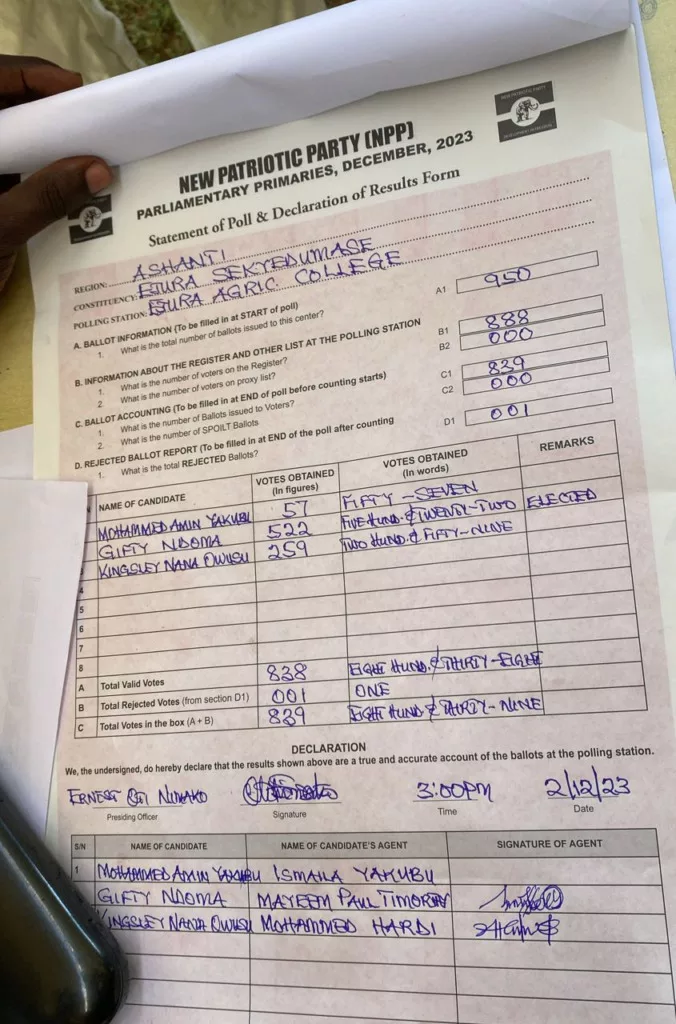 NEW PATRIOTIC PARTY (NPP)
PARLIAMENTARY PRIMARIES, DECEMBER, 2023
Statement of Poll & Declaration of Results Form
REGION: ASHANTI
CONSTITUENCY: EJURA SEKYEDUMASE
POLLING STATION: EJURA AGRIC. COLLEGE
A. BALLOT INFORMATION (To be filled in at START of poll)
1. What is the total number of ballots issued to this center? A1 950
B. INFORMATION ABOUT THE REGISTER AND OTHER LIST AT THE POLLING STATION
1. What is the number of voters on the Register? B1 888
2 What is the number of voters on proxy list? B2 000
C. BALLOT ACCOUNTING (To be filled in at END of poll before counting starts)
1. What is the number of Ballots issued to Voters? C1 839
2. What is the number of SPOILT Ballots C2 000
D. REJECTED BALLOT REPORT (To be filled in at END of the poll after counting
1. What is the total REJECTED Ballots? D1 001
NAME OF CANDIDATE VOTES OBTAINED (In figures) VOTES OBTAINED (In words) REMARKS
MOHAMMED AMIN YAKUBU 57 FIFTY-SEVEN
GIFTY NDOMA 522 FIVE HUND. & TWENTY-TWO ELECTED
KINGSLEY NANA OWUSU 259 TWO HUND. & FIFTY-NINE
4
5
6
7
8
A Total Valid Votes 838 EIGHT HUND. & THIRTY-EIGHT
B Total Rejected Votes (from section D1) 001 ONE
C Total Votes in the box (A + B) 839 EIGHT HUND & THIRTY-NINE
DECLARATION
We, the undersigned, do hereby declare that the results shown above are a true and accurate account of the ballots at the polling station.
ERNEST NIMAKO 3:00PM 2/12/23
Presiding Officer Signature Time Date
S/N NAME OF CANDIDATE NAME OF CANDIDATE'S AGENT SIGNATURE OF AGENT
1 MOHAMMED AMIN YAKUBU ISMAILA YAKUBU
GIFTY NDOMA MAYEEM PAUL
KINGSLEY NANA OWUSU MOHAMMED HARDI